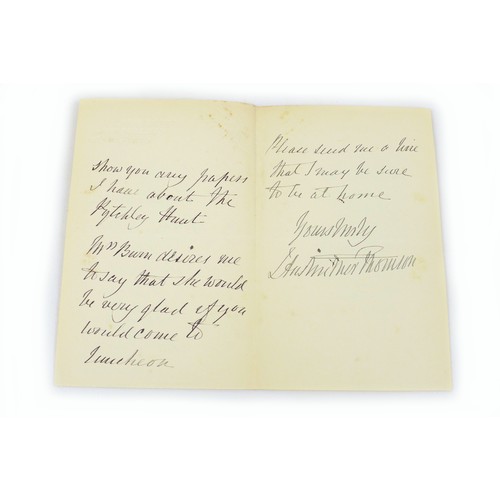 show you any papers
I have about the
Pytchley Hunt
Mrs Burn desires me
to say that she would
be very glad if you
would come to
luncheon
Please send me a line
that I may be sure
to be at home
Yours truly
Thomson